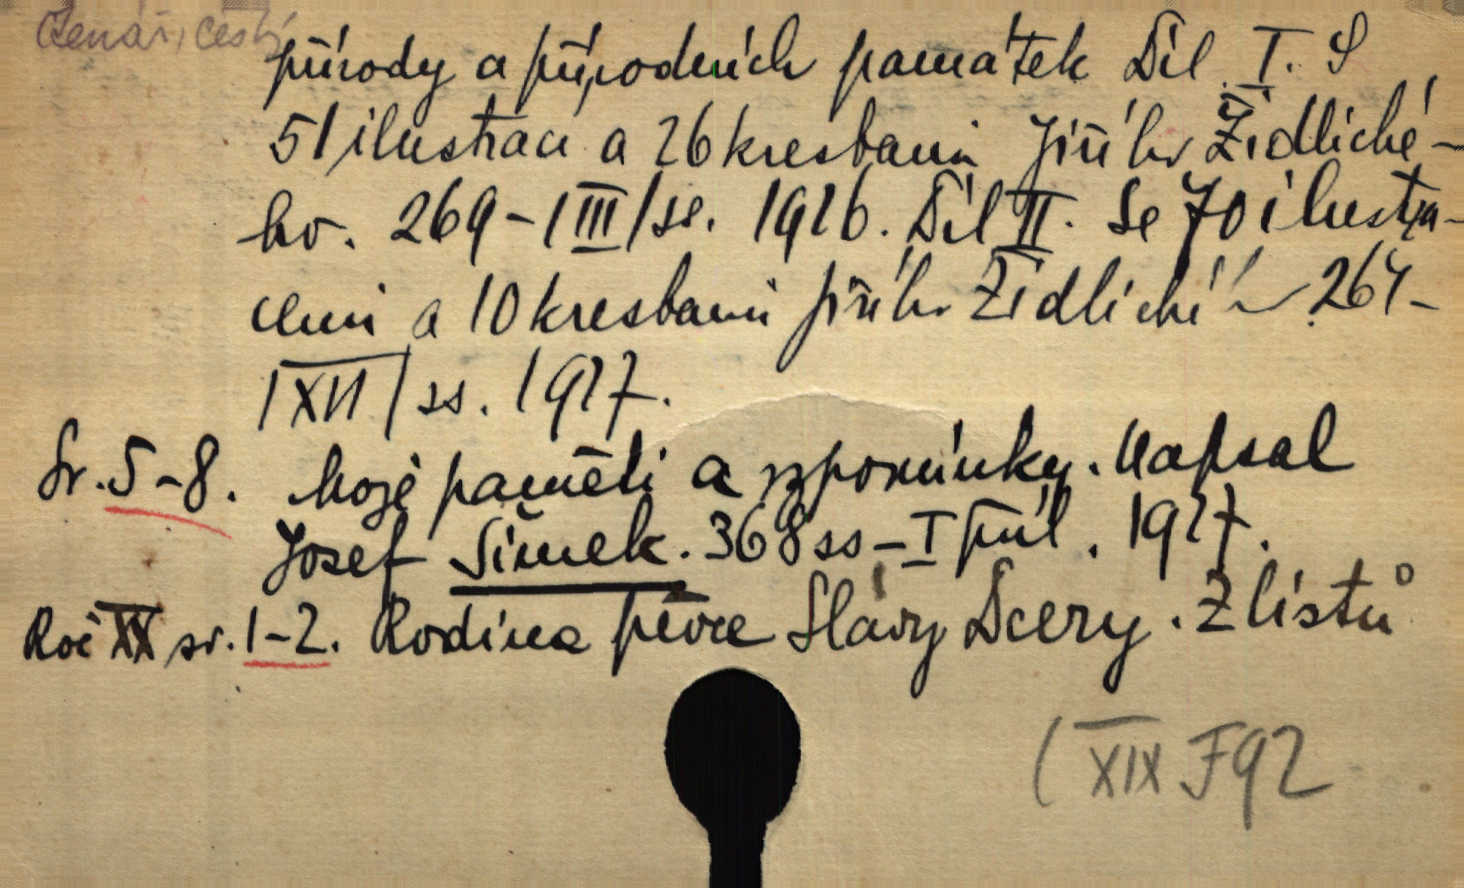 Čtenář, český
přírody a přírodních památek Díl I. S
51 ilustrací a 26 kresbami Jiřího Židlické-
ho. 269-|III| ss. 1926. Díl II. Se 70 ilustra-
cemi a 10 kresbami Jiřího Židlického 264-
|XII| ss. 1927.
Sv. 5-8. Moje paměti a vzpomínky. Napsal
Josef Šimek. 368 ss - I příl. 1927.
Roč XX sv. 1-2. Rodina pěvce Slávy Dcery. Z listů
(XIX F92